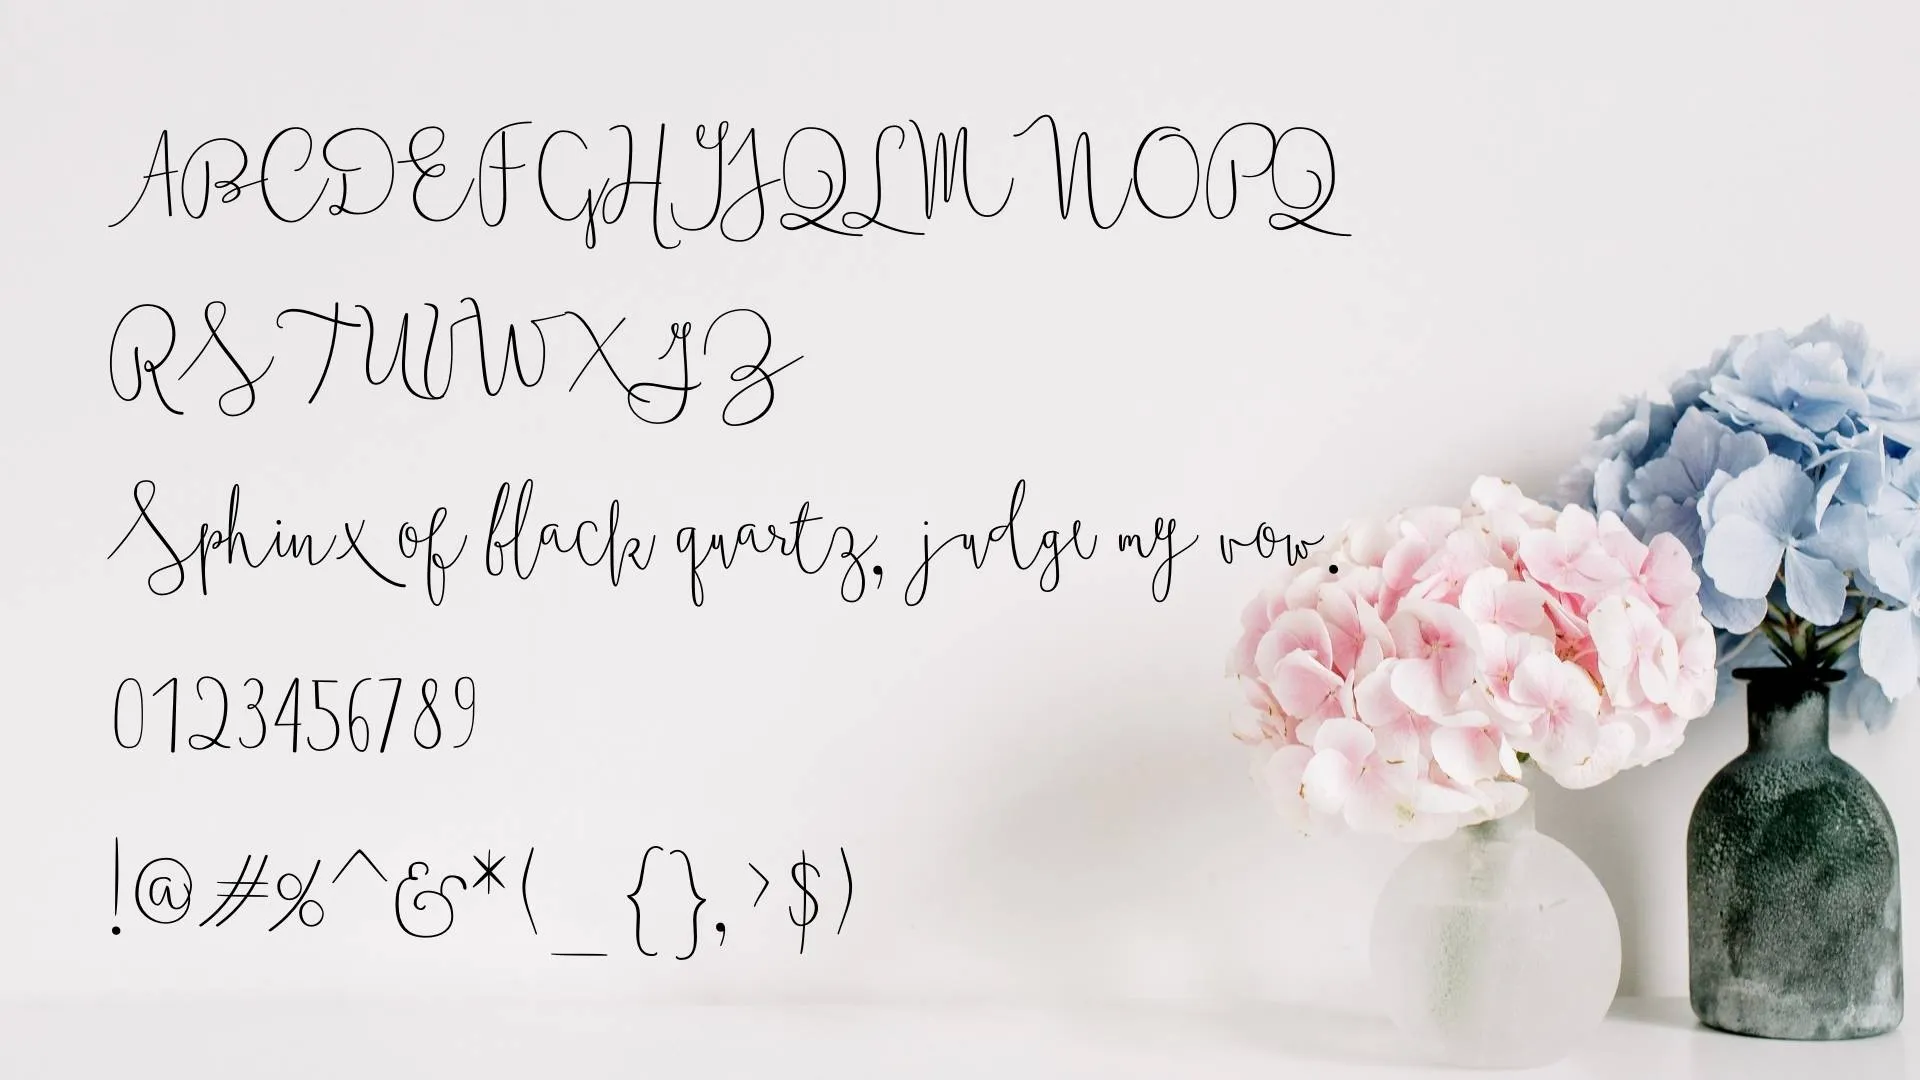 ABCDEFGHIJQLMNOPQ
RSTUVWXYZ
Sphinx of black quartz, judge my vow.
0123456789
!@#%^&*(_{},>$)